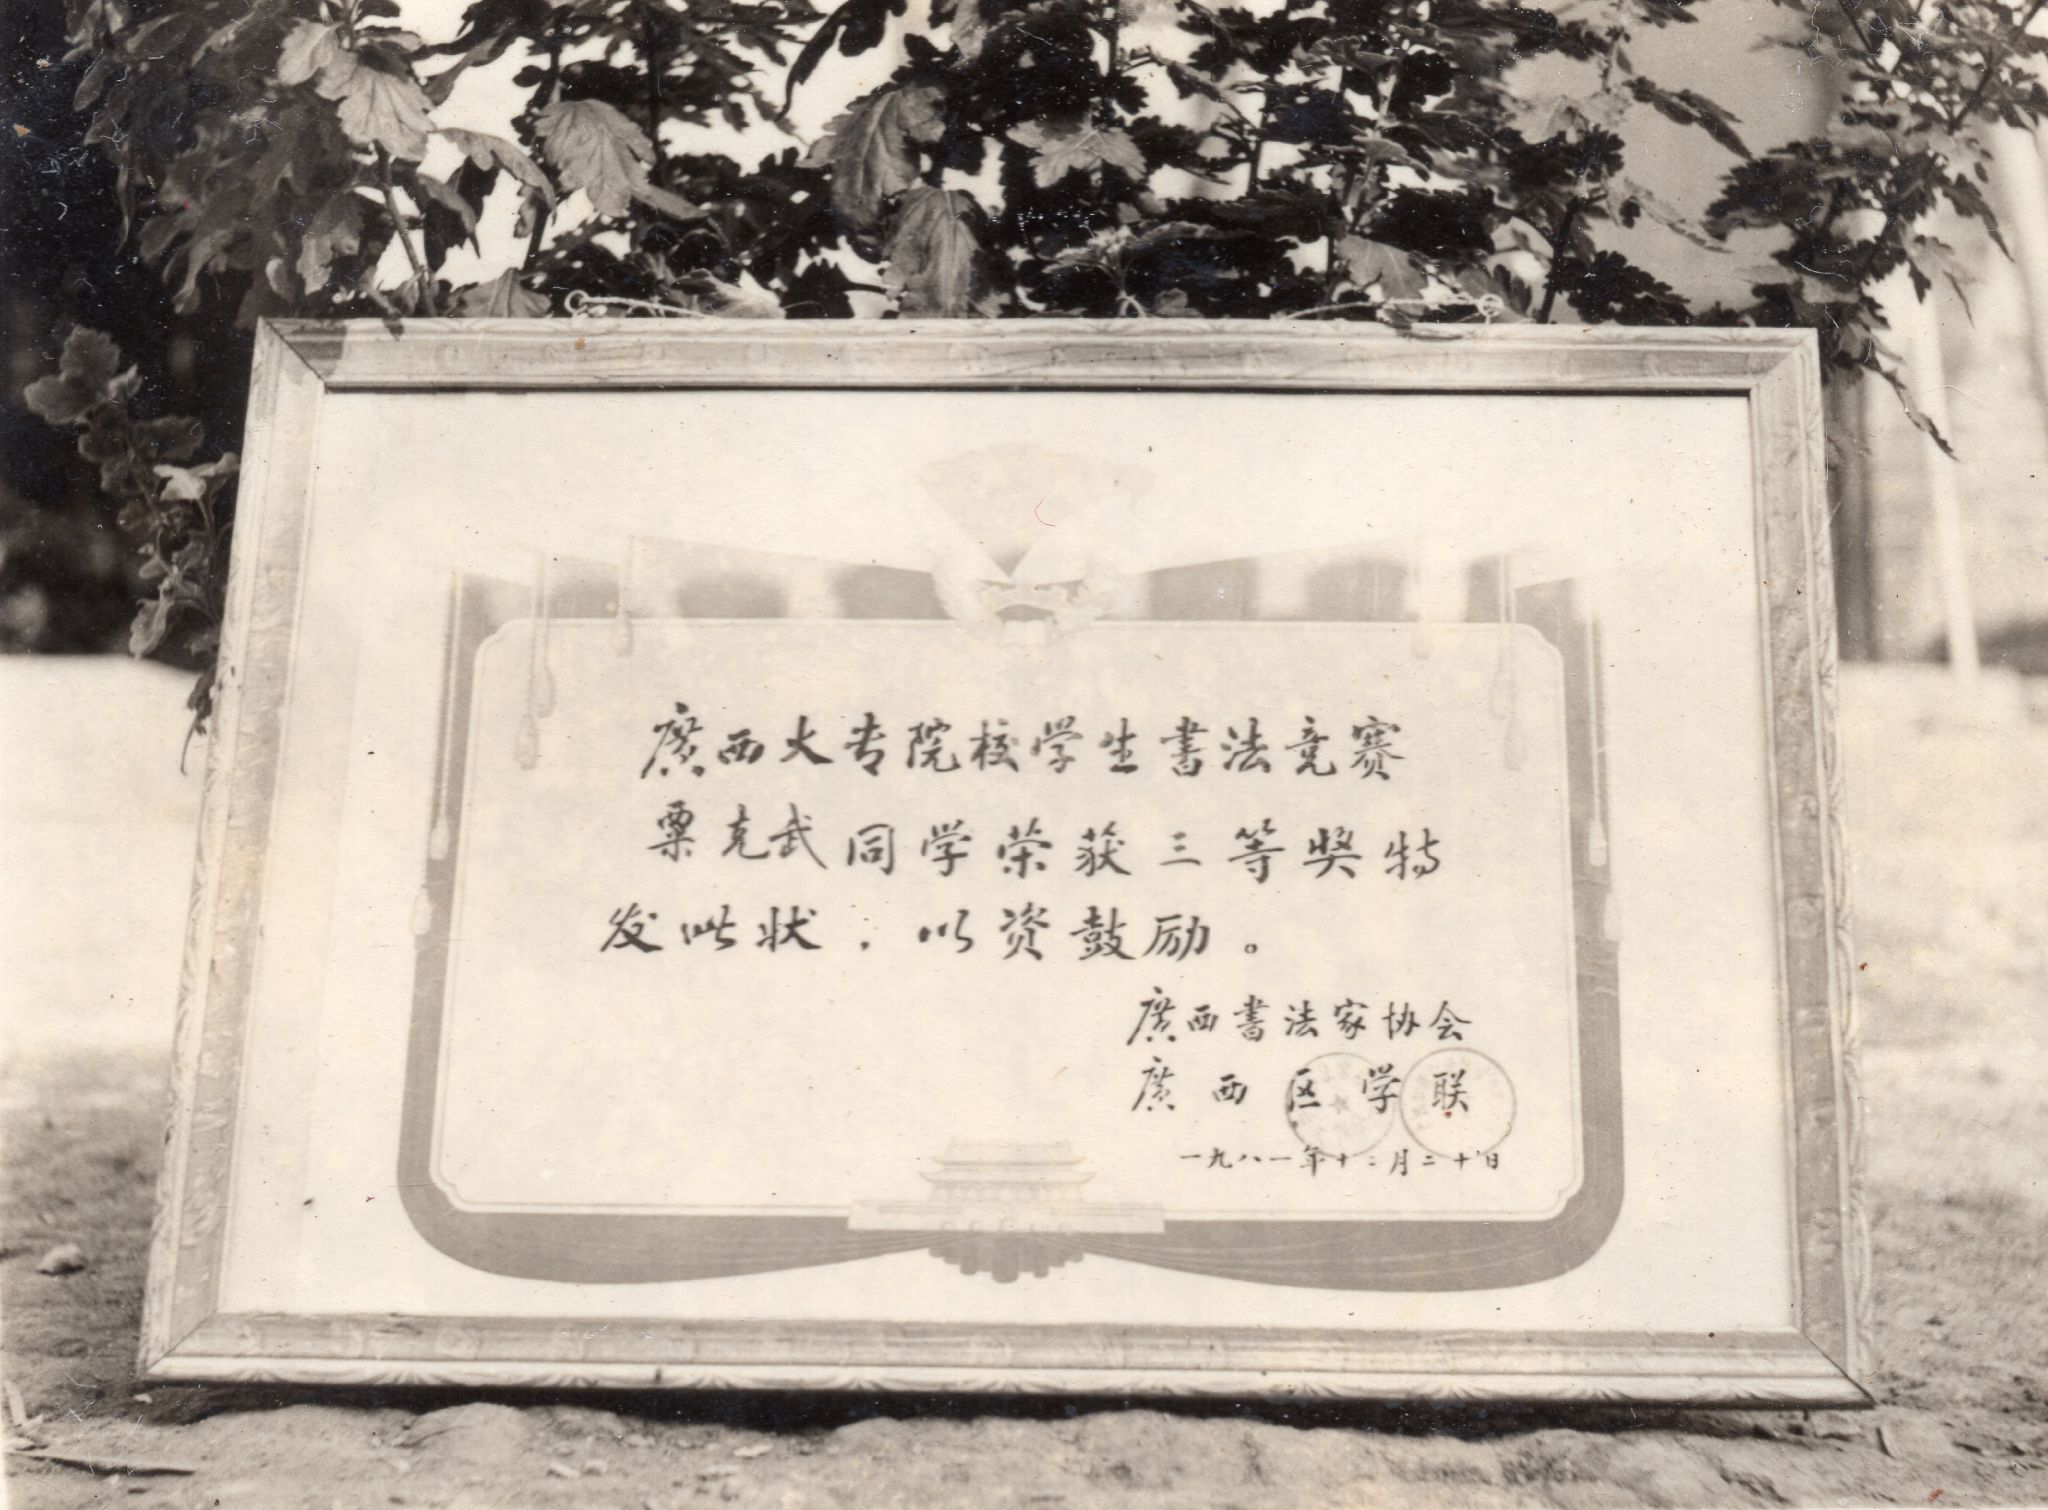 廣西大专院校学生書法竞赛
粟克武同学荣获三等奖特
发此状，以资鼓励。
廣西書法家协会
廣西区学联
一九八一年十二月二十日